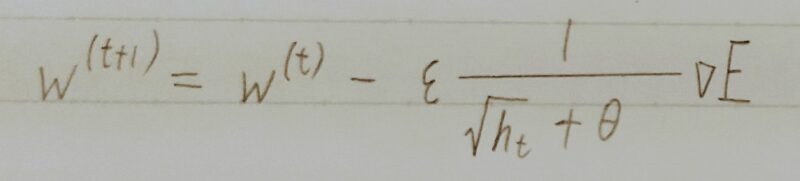 w^{(t+1)} = w^{(t)} - ε \frac{1}{\sqrt{h_t} + θ} ∇E